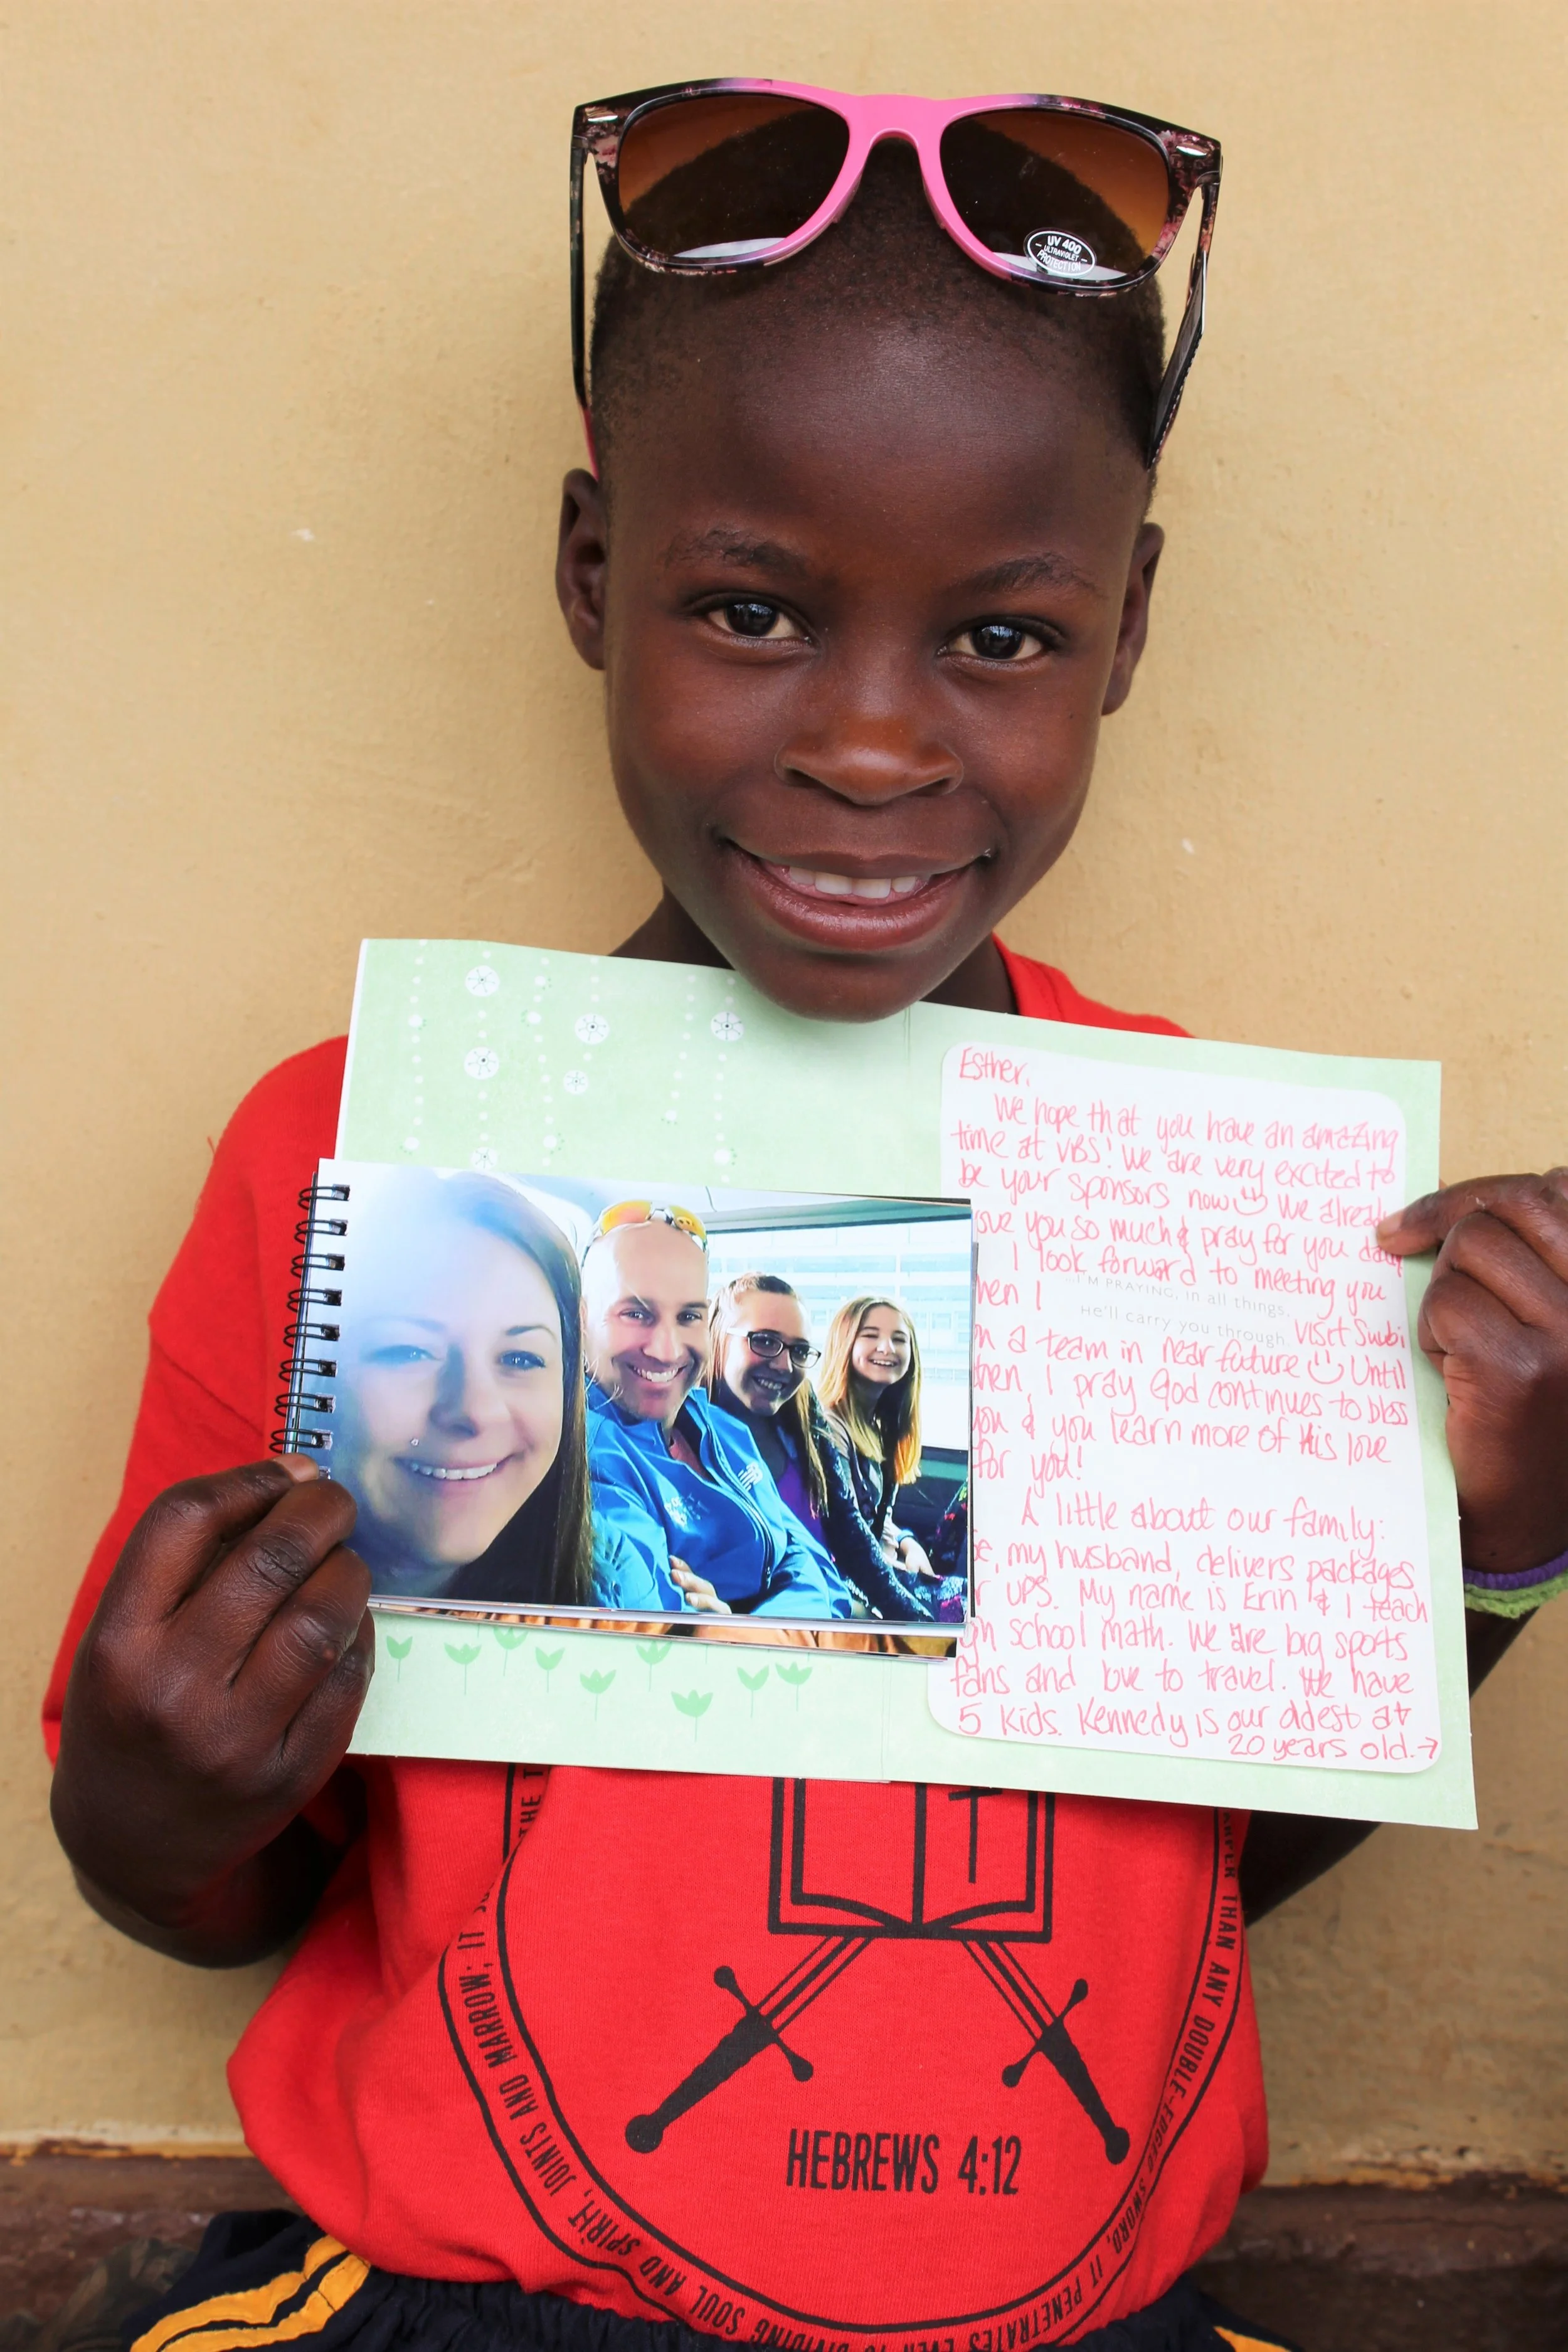 UV 400
ULTRAVIOLET
PROTECTION
Esther,
We hope that you have an amazing
time at VBS! We are very excited to
be your sponsors now☺ We already
you so much & pray for you
I look forward to meeting you
hen I
I'M PRAYING, in all things,
He'll carry you through. visit Suubi
n a team in near future ☺ Until
hen, I pray God continues to bless
you & you learn more of His love
for you!
A little about our family:
e, my husband, delivers packages
r UPS. My name is Erin & I teach
gh school math. We are big sports
fans and love to travel. We have
5 kids. Kennedy is our oldest at
20 years old.→
THE
ARPER THAN ANY DOUBLE-EDGED SWORD, IT PENETRATES EVEN TO DIVIDING SOUL AND SPIRIT, JOINTS AND MARROW; IT
HEBREWS 4:12